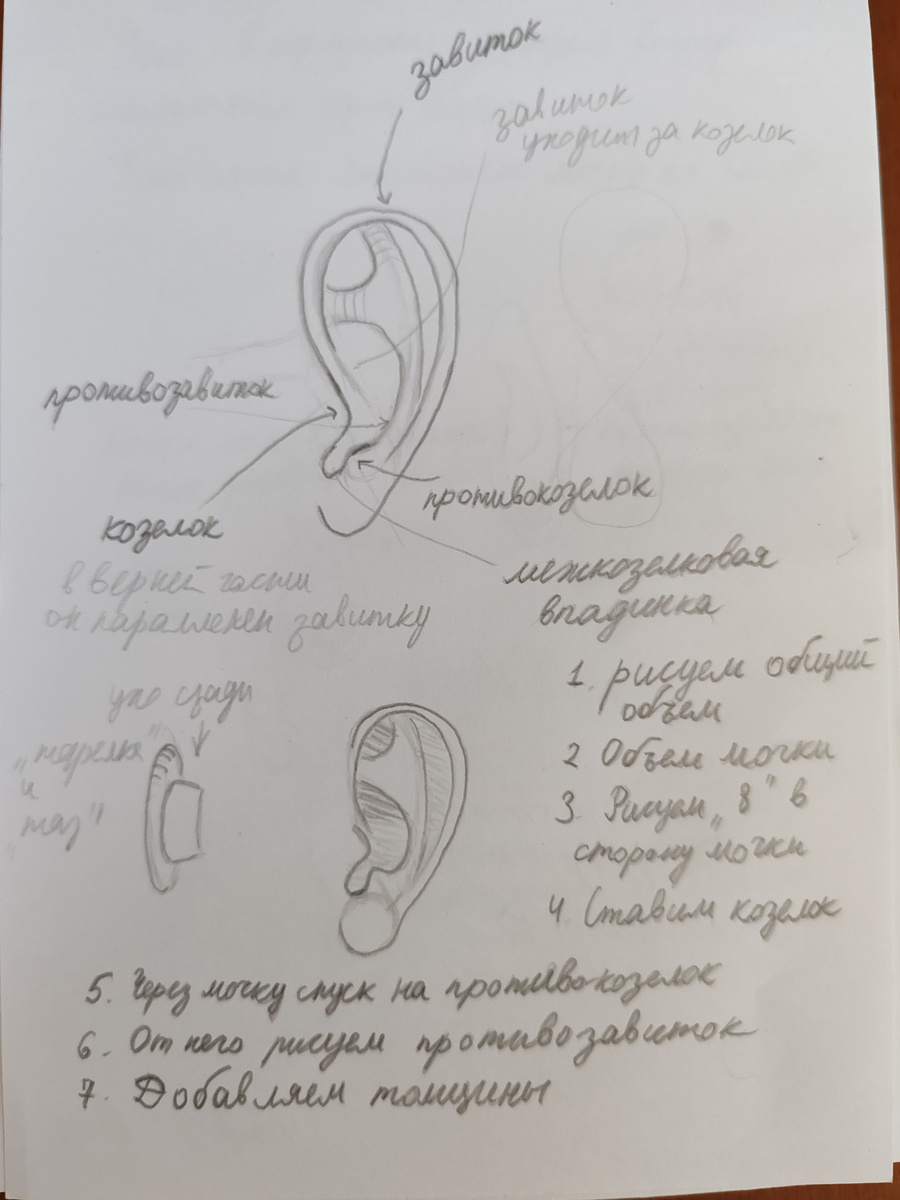 завиток
завиток
уходит за козелок
противозавиток
противокозелок
козелок
межкозелковая
впадинка
в верней части
он параллелен завитку
ухо сзади
„тарелка"
и
„таз"
1. рисуем общий
объем
2 Объем мочки
3. Рисуем „8" в
сторону мочки
4. Ставим козелок
5. Через мочку спуск на противокозелок
6. От него рисуем противозавиток
7. Добавляем толщины